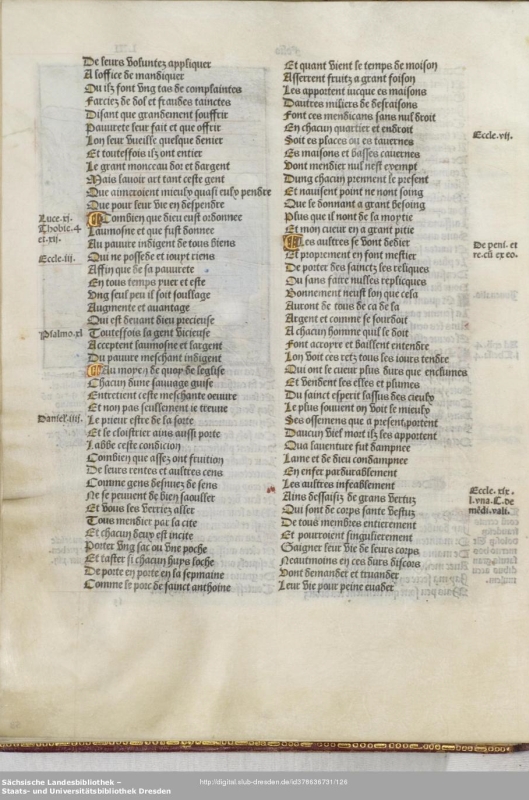 De leurs voluntez appliquer
A loffice de mandiquer
Ou ilz font vng tas de complaintes
Farciez de dol et fraudes tainctes
Disant que grandement souffrir
Pauurete leur fait et que offrir
Lon leur vueille quelque denier
Et touteffois ilz ont entier
Le grant monceau dor et dargent
Mais lauoir art tant ceste gent
Que aimeroient mieulx quasi eulx pendre
Que pour leur vie en despendre
Luce.xi.
Thobie.4
et.xii.
Eccle.iii.
Combien que dieu eust ordonnee
Laumosne et que fust donnee
Au pauure indigent de tous biens
Qui ne possede et ioupt riens
Affin que de sa pauurete
En tous temps yuer et este
Vng seul peu il soit soullage
Augmente et auantage
Qui est deuant dieu precieuse
Psalmo.xl
Touteffois la gent vicieuse
Acceptent laumosne et largent
Du pauure meschant indigent
Au moyen de quoy de leglise
Chacun dune sauuage guise
Entretient ceste meschante oeuure
Et non pas seullement ie treuue
Daniel.iiij.
Le prieur estre de la sorte
Et le cloistrier ains aussi porte
Labbe ceste condicion
Combien que assez ont fruition
De leurs rentes et aultres cens
Comme gens desnuez de sens
Ne se peuuent de bien saouller
Et vous les verriez aller
Tous mendier par la cite
Et chacun deux est incite
Porter vng sac ou vne poche
Et taster si chacun huys loche
De porte en porte en la sepmaine
Comme le porc de sainct anthoine
Et quant vient le temps de moison
Asserrent fruitz a grant foison
Les apportent iucque es maisons
Dautres miliers de desraisons
Font ces mendicans sans nul droit
En chacun quartier et endroit
Eccle.vij.
Soit es places ou es tauernes
Es maisons et basses cauernes
Vont mendier nul nest exempt
Dung chacun prennent le present
Et nauisent point ne nont soing
Que le donnant a grant besoing
Plus que il nont de la moytie
Et mon cueur en a grant pitie
Les aultres se vont dedier
De peni. et
re.cū ex eo.
Et proprement en font mestier
De porter des sainctz les reliques
Ou sans faire nulles repliques
Bonnement neust lon que cela
Auront de tous de ca de la
Argent et comme se sourdoit
A chacun homme quil le doit
Font accroyre et baillent entendre
Lon voit ces retz tous les iours tendre
Qui ont le cueur plus durs que enclumes
Et vendent les elles et plumes
Du sainct esperit lassus des cieulx
Le plus souuent on voit le mieulx
Ses ossemens que a present portent
Daucun vieil mort ilz les apportent
Qua lauenture fut dampnee
Lame et de dieu condampnee
En enfer pardurablement
Les aultres infeablement
Eccle. xix.
l.vna.C.de
mēdi.vali.
Ains dessaisiz de grans vertuz
Qui sont de corps sante vestuz
De tous membres entierement
Et pourroient singulierement
Gaigner leur vie de leurs corps
Neautmoins en ces durs discors
Vont demander et truander
Leur vie pour peine euader
Sächsische Landesbibliothek –
Staats- und Universitätsbibliothek Dresden
http://digital.slub-dresden.de/id378636731/126